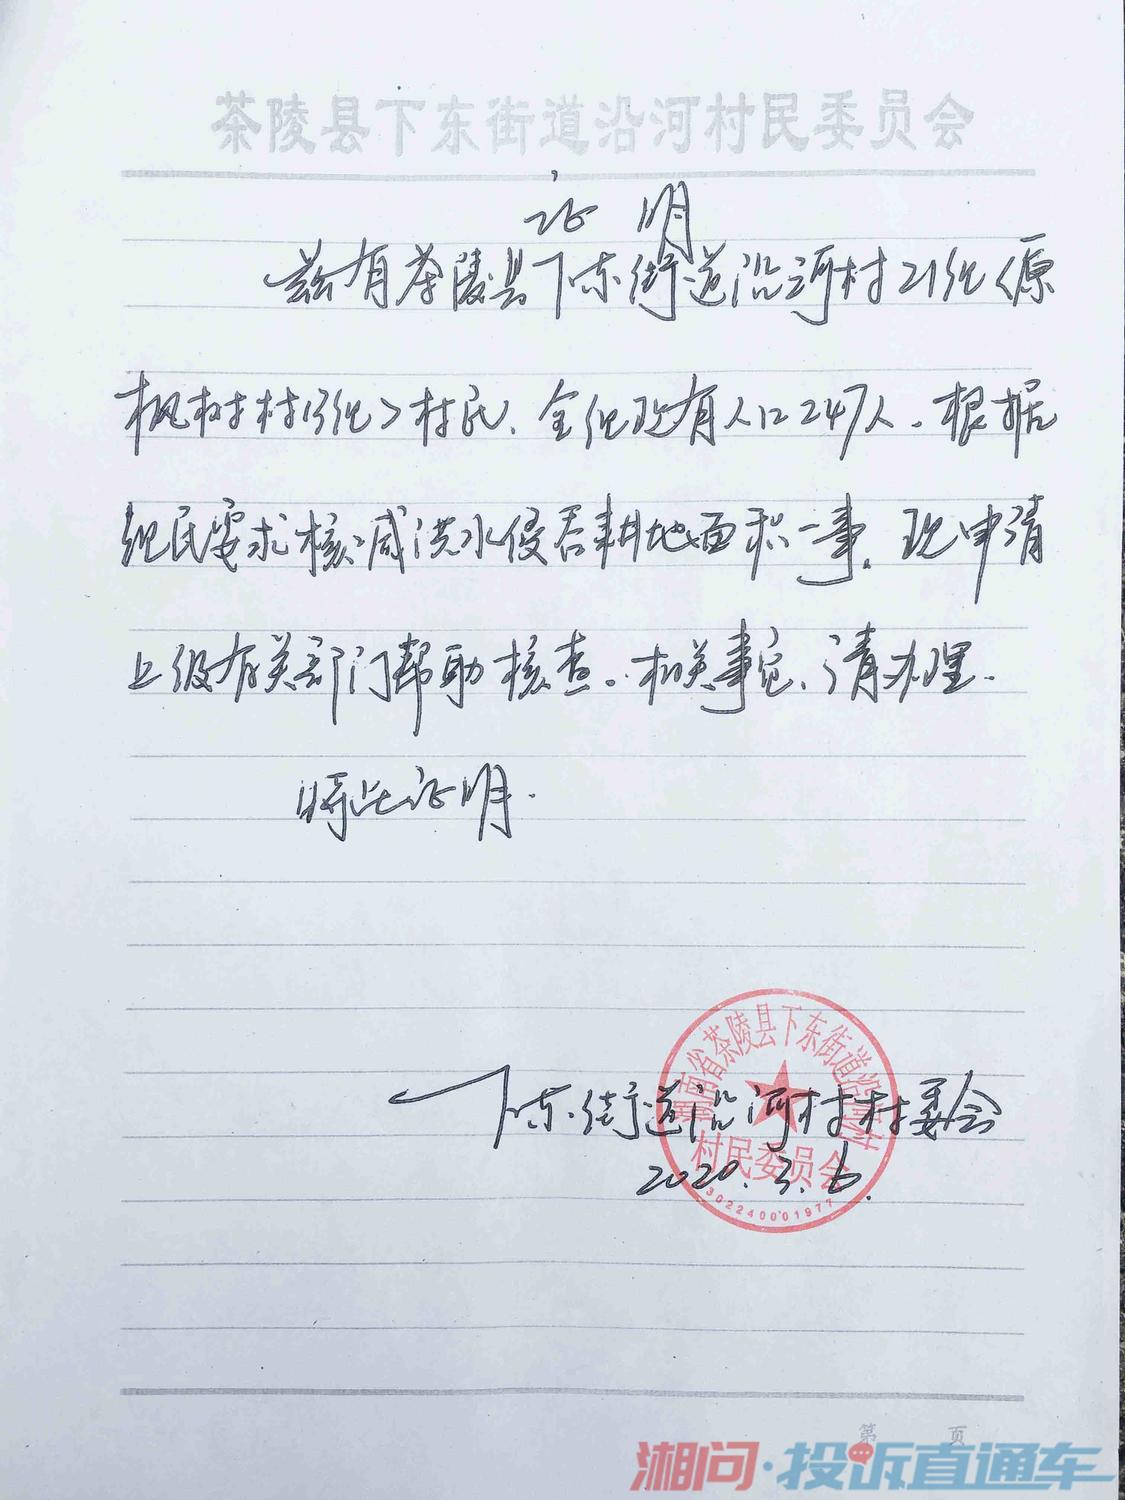 茶陵县下东街道沿河村民委员会
证明
兹有茶陵县下东街道沿河村21组<原
枫树村13组>村民、全组现有人口247人。根据
组民要求核减洪水侵吞耕地面积一事。现申请
上级有关部门帮助核查。相关事宜、请办理.
特此证明.
下东街道沿河村村委会
2020.3.6.
湖南省茶陵县下东街道沿河村
村民委员会
302240001977
第 页
湘问·投诉直通车